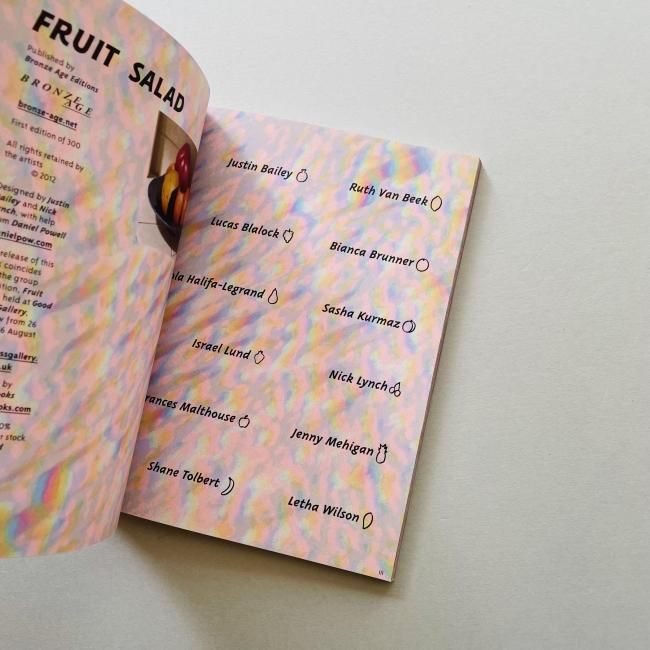 FRUIT SALAD
Published by
Bronze Age Editions
BRONZE
AGE
bronze-age.net
First edition of 300
All rights retained by
the artists
© 2012
Designed by Justin
Bailey and Nick
Lynch, with help
Daniel Powell
release of this
coincides
the group
Fruit
held at Good
Gallery.
26
August
by
stock
Justin Bailey
Ruth Van Beek
Lucas Blalock
Bianca Brunner
Halifa-Legrand
Sasha Kurmaz
Israel Lund
Nick Lynch
Malthouse
Jenny Mehigan
Shane Tolbert
Letha Wilson
III